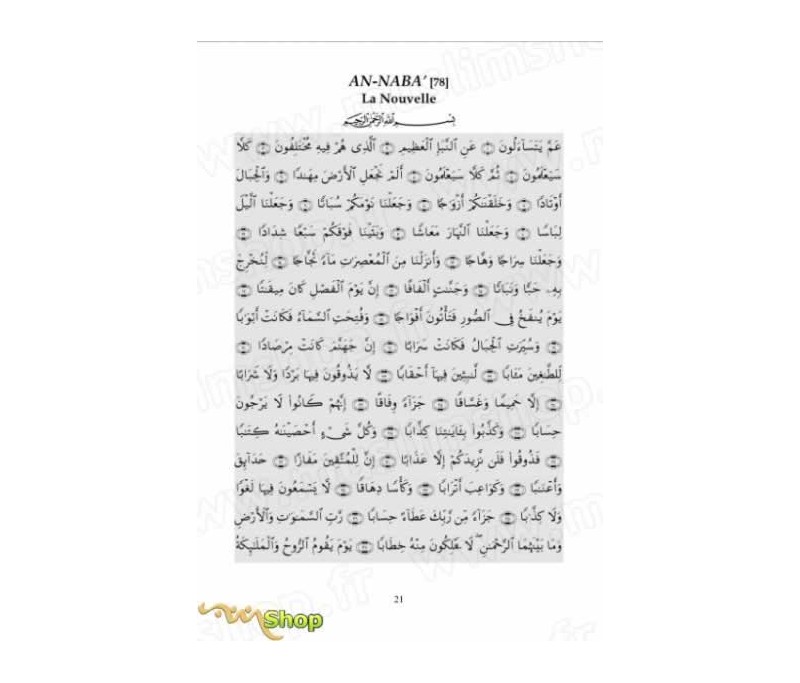 AN-NABA' [78]
La Nouvelle
بِسْمِ اللَّهِ الرَّحْمَٰنِ الرَّحِيمِ
عَمَّ يَتَسَآءَلُونَ ۝ عَنِ ٱلنَّبَإِ ٱلْعَظِيمِ ۝ ٱلَّذِى هُمْ فِيهِ مُخْتَلِفُونَ ۝ كَلَّا
سَيَعْلَمُونَ ۝ ثُمَّ كَلَّا سَيَعْلَمُونَ ۝ أَلَمْ نَجْعَلِ ٱلْأَرْضَ مِهَٰدًا ۝ وَٱلْجِبَالَ
أَوْتَادًا ۝ وَخَلَقْنَٰكُمْ أَزْوَٰجًا ۝ وَجَعَلْنَا نَوْمَكُمْ سُبَاتًا ۝ وَجَعَلْنَا ٱلَّيْلَ
لِبَاسًا ۝ وَجَعَلْنَا ٱلنَّهَارَ مَعَاشًا ۝ وَبَنَيْنَا فَوْقَكُمْ سَبْعًا شِدَادًا ۝
وَجَعَلْنَا سِرَاجًا وَهَّاجًا ۝ وَأَنزَلْنَا مِنَ ٱلْمُعْصِرَٰتِ مَآءً ثَجَّاجًا ۝ لِّنُخْرِجَ
بِهِۦ حَبًّا وَنَبَاتًا ۝ وَجَنَّٰتٍ أَلْفَافًا ۝ إِنَّ يَوْمَ ٱلْفَصْلِ كَانَ مِيقَٰتًا ۝
يَوْمَ يُنفَخُ فِى ٱلصُّورِ فَتَأْتُونَ أَفْوَاجًا ۝ وَفُتِحَتِ ٱلسَّمَآءُ فَكَانَتْ أَبْوَٰبًا
۝ وَسُيِّرَتِ ٱلْجِبَالُ فَكَانَتْ سَرَابًا ۝ إِنَّ جَهَنَّمَ كَانَتْ مِرْصَادًا ۝
لِّلطَّٰغِينَ مَـَٔابًا ۝ لَّٰبِثِينَ فِيهَآ أَحْقَابًا ۝ لَّا يَذُوقُونَ فِيهَا بَرْدًا وَلَا شَرَابًا
۝ إِلَّا حَمِيمًا وَغَسَّاقًا ۝ جَزَآءً وِفَاقًا ۝ إِنَّهُمْ كَانُوا۟ لَا يَرْجُونَ
حِسَابًا ۝ وَكَذَّبُوا۟ بِـَٔايَٰتِنَا كِذَّابًا ۝ وَكُلَّ شَىْءٍ أَحْصَيْنَٰهُ كِتَٰبًا
۝ فَذُوقُوا۟ فَلَن نَّزِيدَكُمْ إِلَّا عَذَابًا ۝ إِنَّ لِلْمُتَّقِينَ مَفَازًا ۝ حَدَآئِقَ
وَأَعْنَٰبًا ۝ وَكَوَاعِبَ أَتْرَابًا ۝ وَكَأْسًا دِهَاقًا ۝ لَّا يَسْمَعُونَ فِيهَا لَغْوًا
وَلَا كِذَّٰبًا ۝ جَزَآءً مِّن رَّبِّكَ عَطَآءً حِسَابًا ۝ رَّبِّ ٱلسَّمَٰوَٰتِ وَٱلْأَرْضِ
وَمَا بَيْنَهُمَا ٱلرَّحْمَٰنِ ۖ لَا يَمْلِكُونَ مِنْهُ خِطَابًا ۝ يَوْمَ يَقُومُ ٱلرُّوحُ وَٱلْمَلَٰٓئِكَةُ
21
Shop